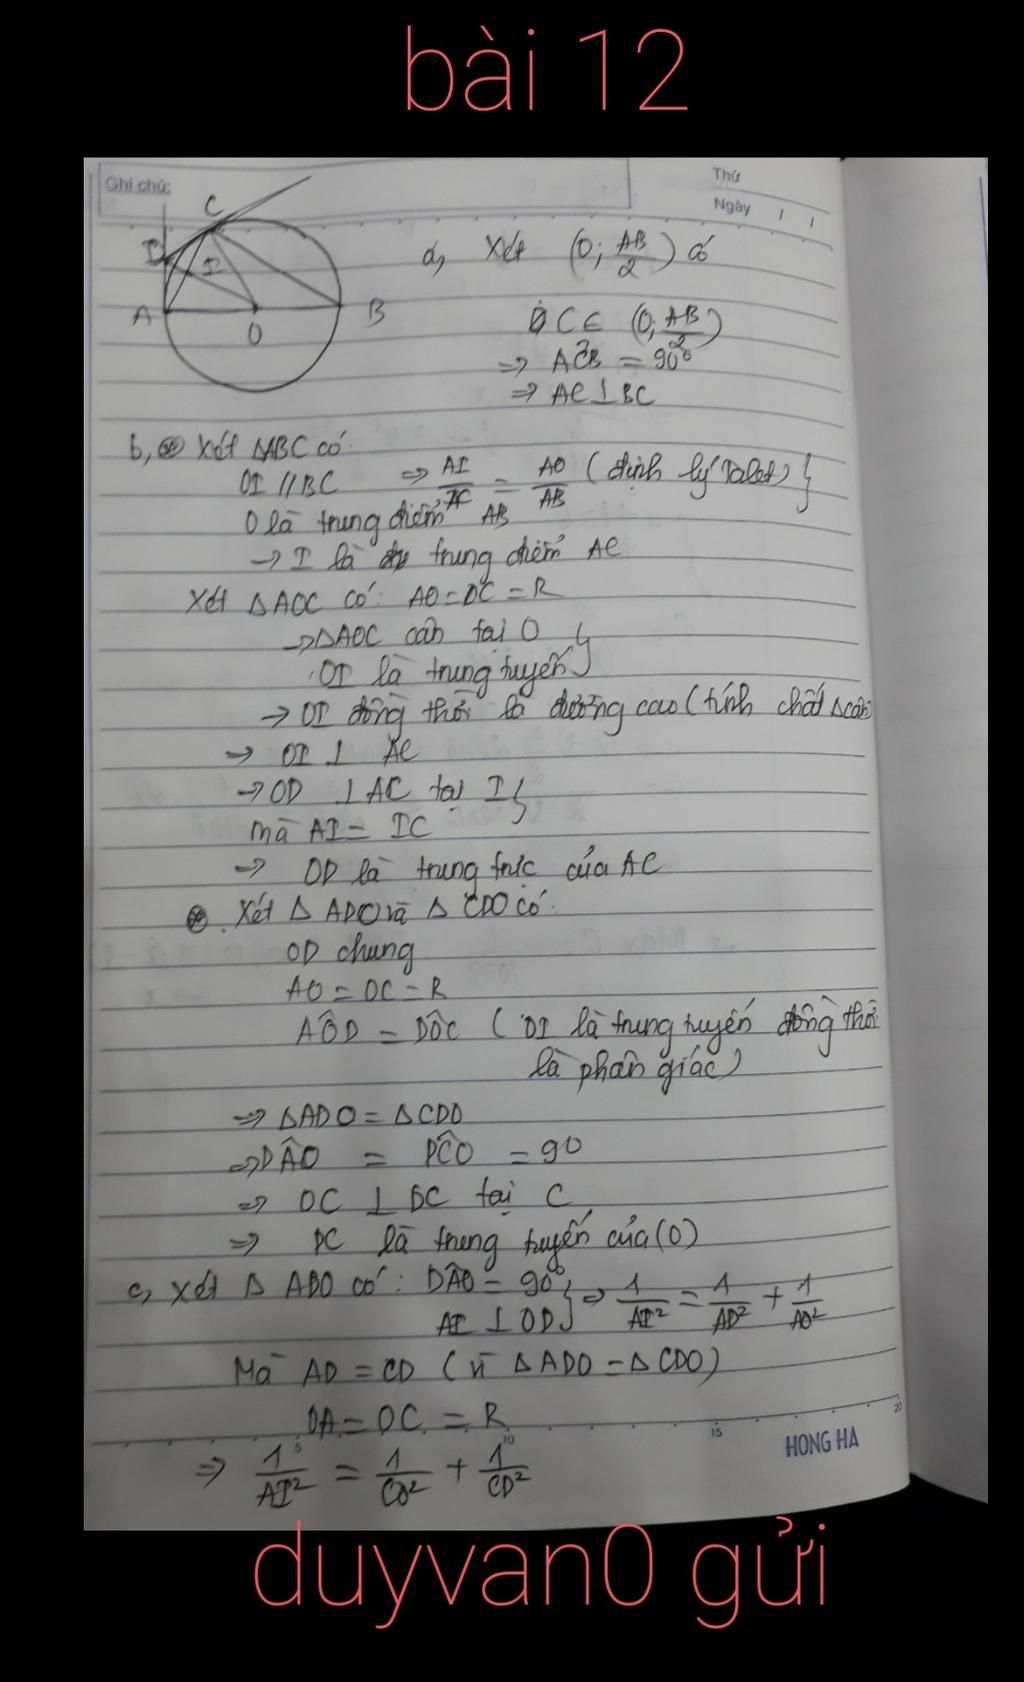 bài 12
Ghi chú:
Thứ
Ngày / /
C
D
I
A
B
O
a, Xét (O; AB/2) có
C ∈ (O; AB/2)
=> AĈB = 90°
=> AC ⊥ BC
b, Xét △ABC có:
OI // BC => AI/IC = AO/AB (định lý Talet) }
O là trung điểm AB
-> I là trung điểm AC
Xét △AOC có: AO = OC = R
-> △AOC cân tại O }
OI là trung tuyến
-> OI đồng thời là đường cao (tính chất △cân
-> OI ⊥ AC
-> OD ⊥ AC tại I }
mà AI = IC
-> OD là trung trực của AC
Xét △ ADO và △ CDO có:
OD chung
AO = OC = R
AÔD = DÔC ( OI là trung tuyến đồng thời
là phân giác)
=> △ADO = △CDO
=> DÂO = DĈO = 90
=> OC ⊥ DC tại C
=> DC là trung tuyến của (O)
c, Xét △ ADO có: DÂO = 90° } => 1/AI² = 1/AD² + 1/AO²
AI ⊥ OD
Mà AD = CD (vì △ ADO = △ CDO)
OA = OC = R
=> 1/AI² = 1/CO² + 1/CD²
5 10 15 20
HONG HA
duyvan0 gửi